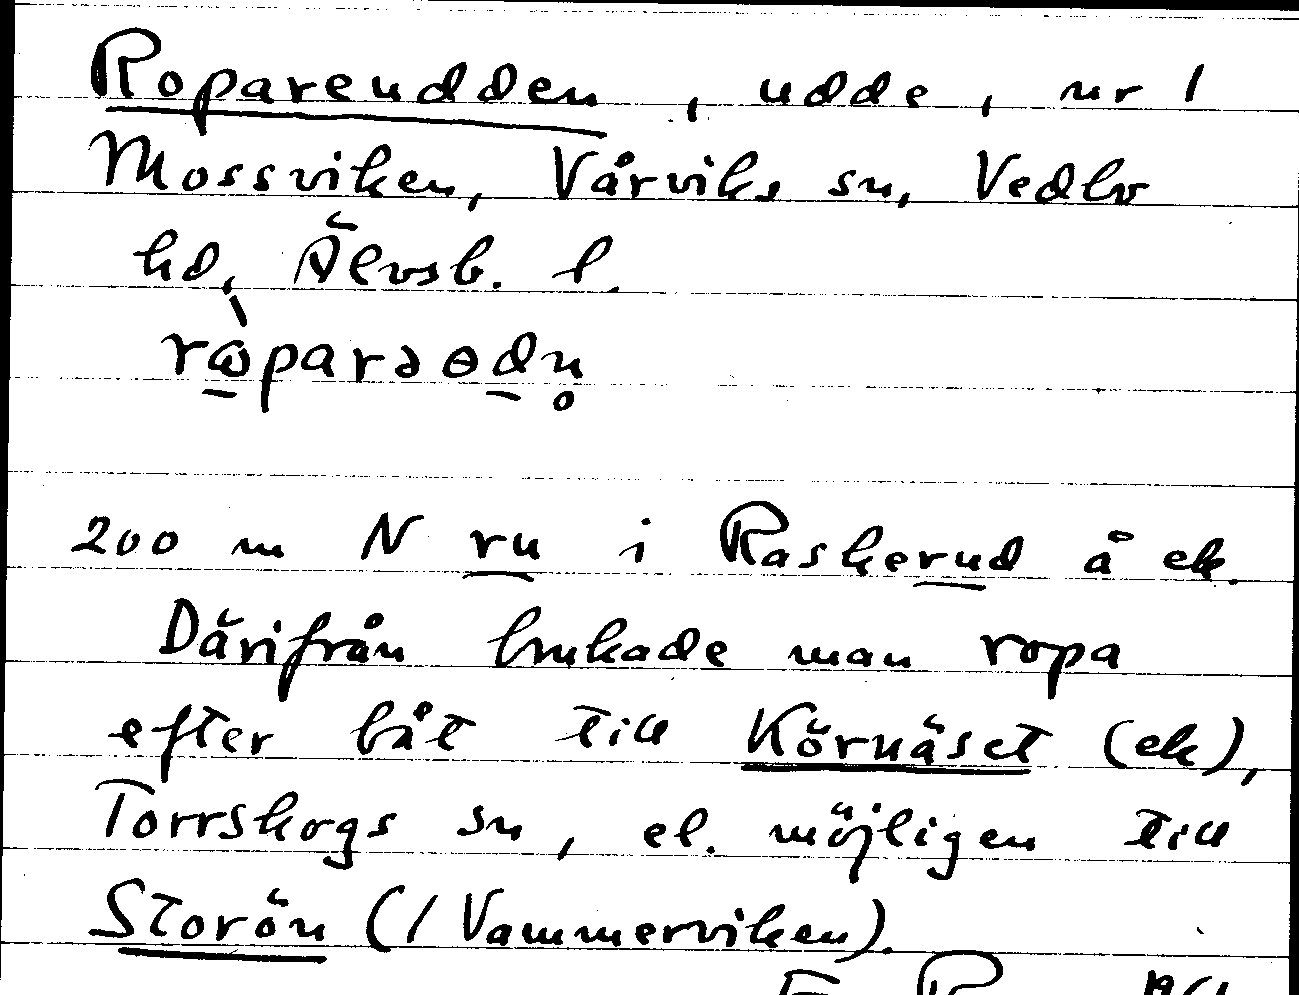 Ropareudden, udde, nr 1
Mossviken, Vårviks sn, Vedbo
hd, Älvsb. l.
200 m N ru i Raskerud å ek.
Därifrån brukade man ropa
efter båt till Körnäset (ek),
Torrskogs sn, el. möjligen till
Storön (1 Vammerviken).